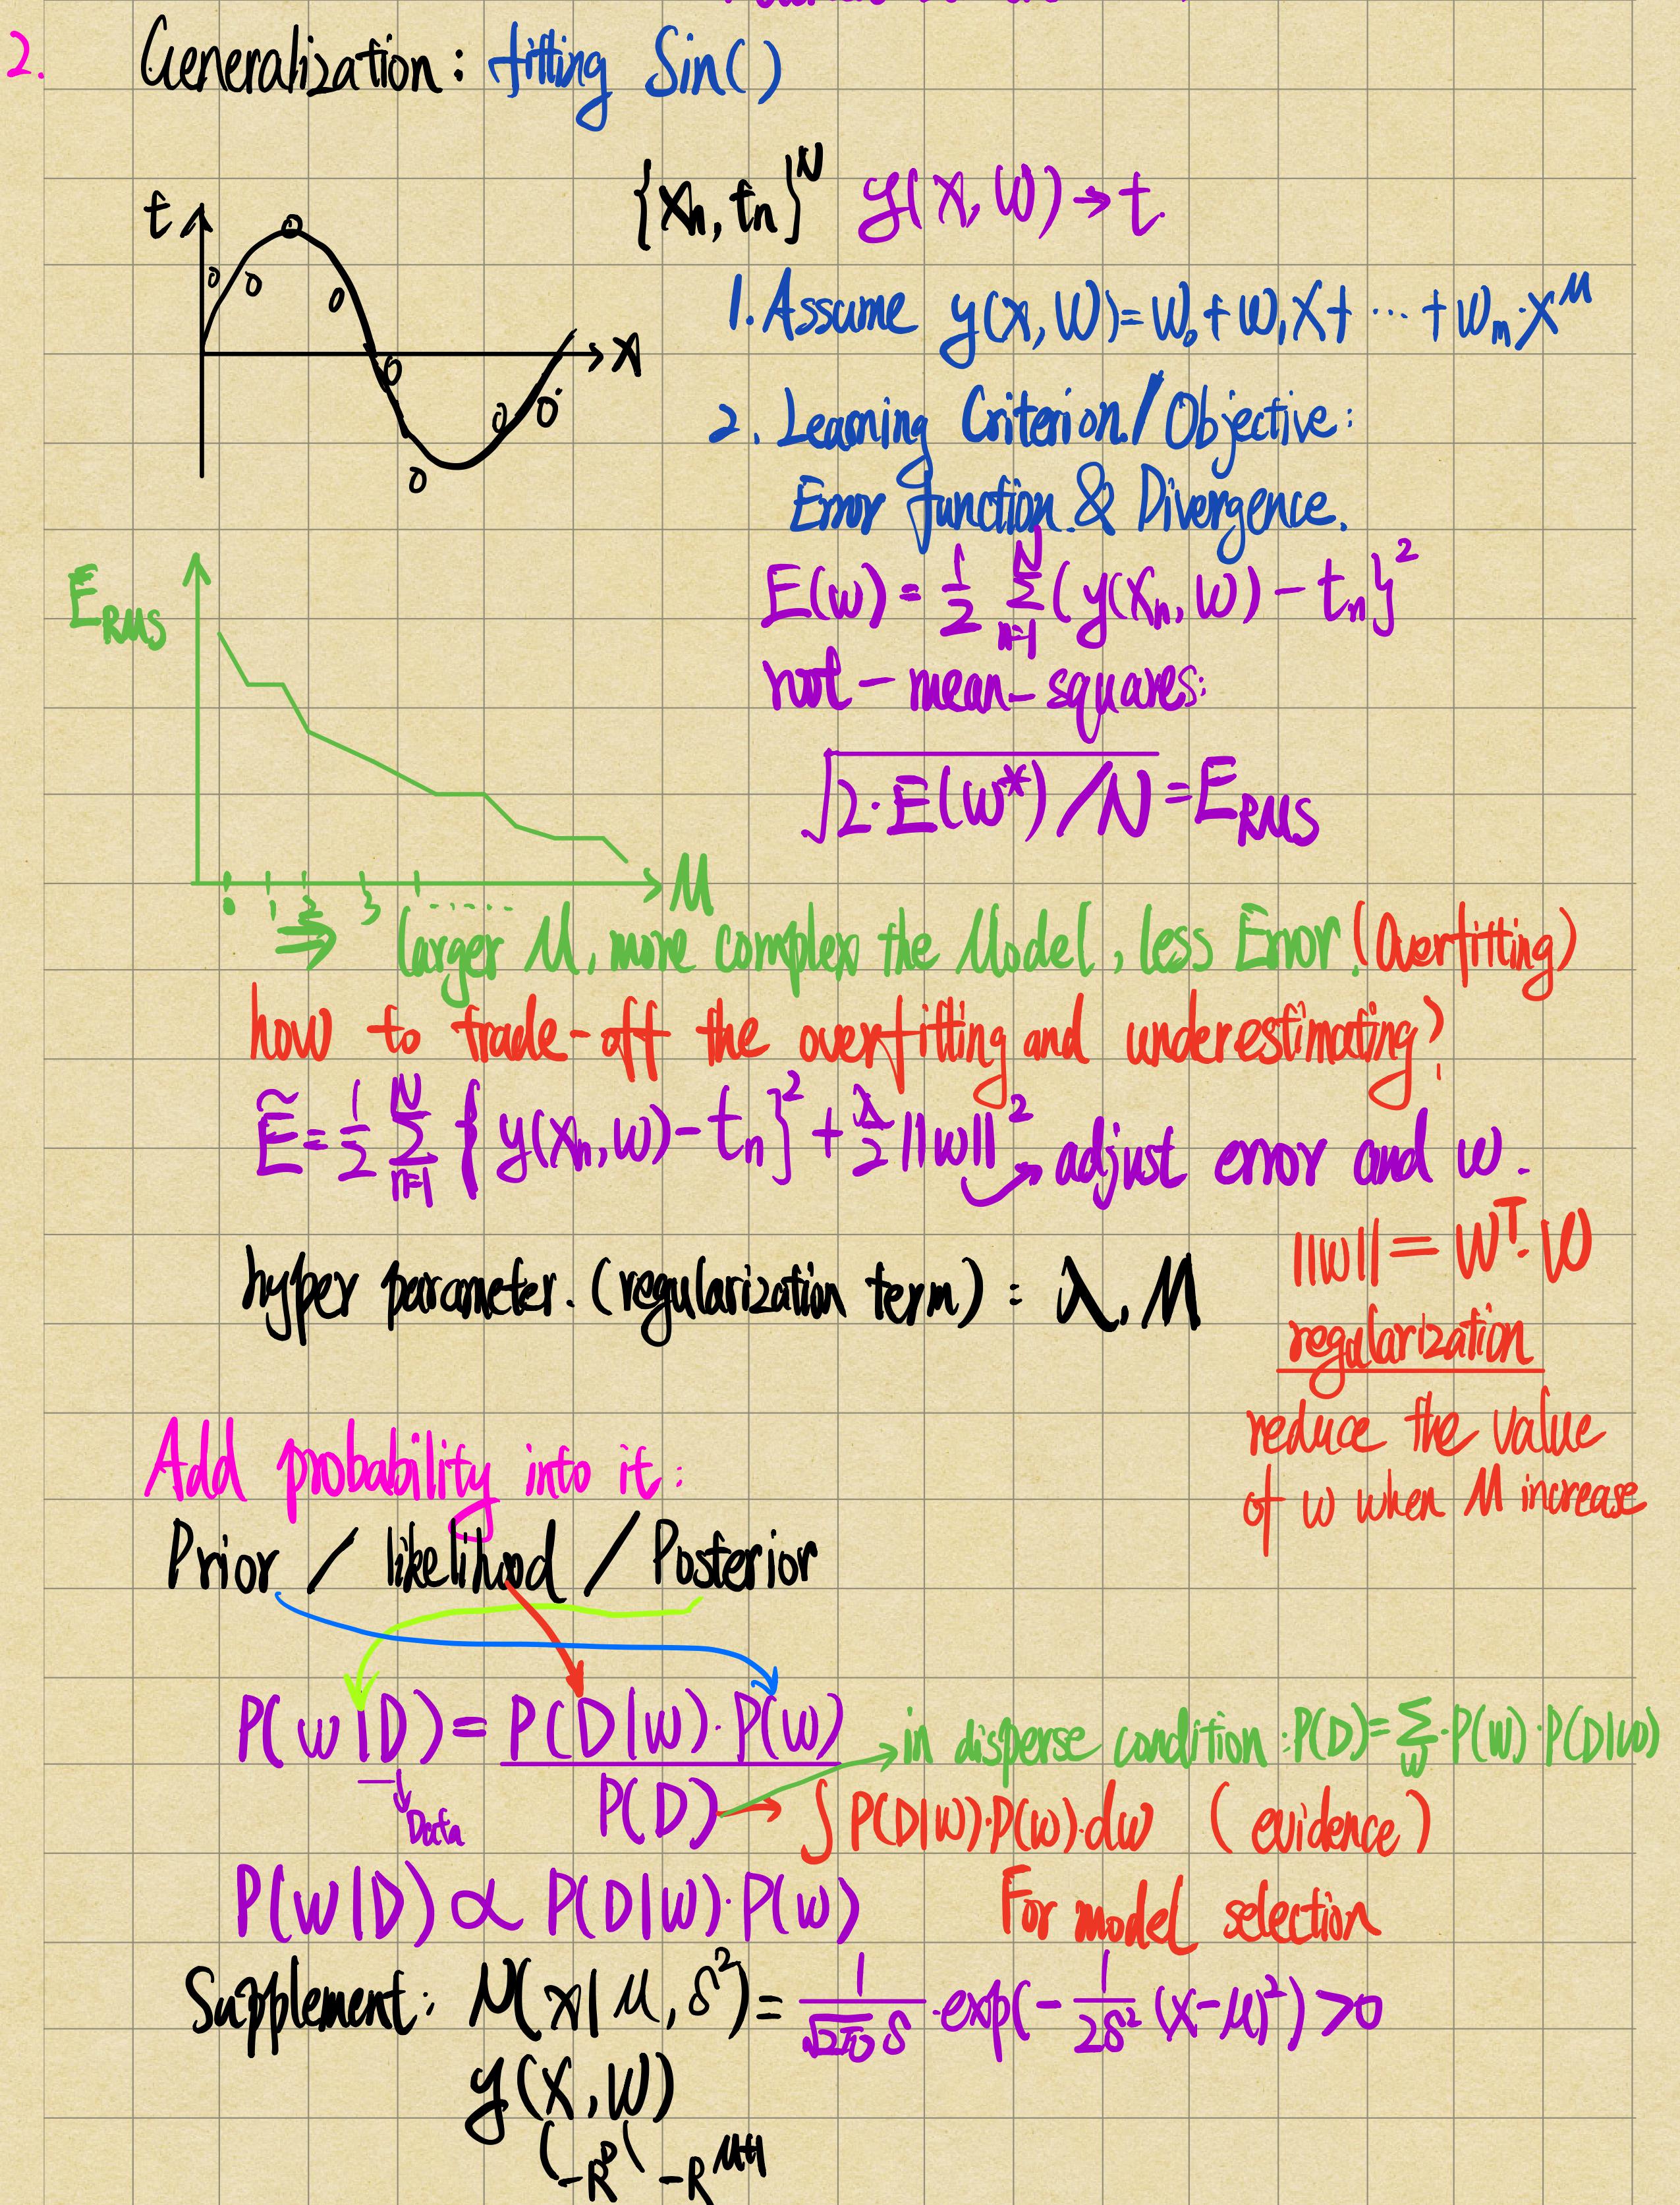 2. Generalization: fitting Sin()
{xn, tn}^N y(x, w) → t.
t
x
1. Assume y(x, w) = w0 + w1x + ··· + wm·x^M
2. Learning Criterion/Objective:
Error function & Divergence.
E(w) = 1/2 Σ_{n=1}^{N} (y(xn, w) - tn}^2
root-mean-squares:
√(2·E(w*)/N) = E_RMS
E_RMS
M
0 1 2 3 ······
⇒ larger M, more complex the Model, less Error! (Overfitting)
how to trade-off the overfitting and underestimating?
Ẽ = 1/2 Σ_{n=1}^{N} { y(xn, w) - tn}^2 + λ/2 ||w||^2 → adjust error and w.
||w|| = w^T·w
hyper parameter. (regularization term) : λ, M
regularization
reduce the value
of w when M increase
Add probability into it:
Prior / likelihood / Posterior
P(w|D) = P(D|w)·P(w) / P(D)
→ in disperse condition: P(D) = Σ_w·P(w)·P(D|w)
↓ Data
→ ∫ P(D|w)·P(w)·dw (evidence)
P(w|D) ∝ P(D|w)·P(w) For model selection
Supplement: N(x|μ, δ^2) = 1/(√2π δ)·exp(-1/(2δ^2) (x-μ)^2) >0
y(x, w)
R^D R^M+1